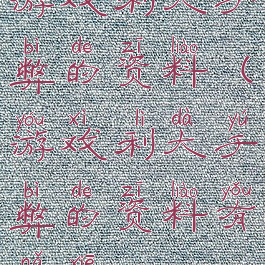 游戏利大于
bì de zī liào
弊的资料（
yóu xì lì dà yú
游戏利大于
bì de zī liào yǒu
弊的资料有
nǎ xiē